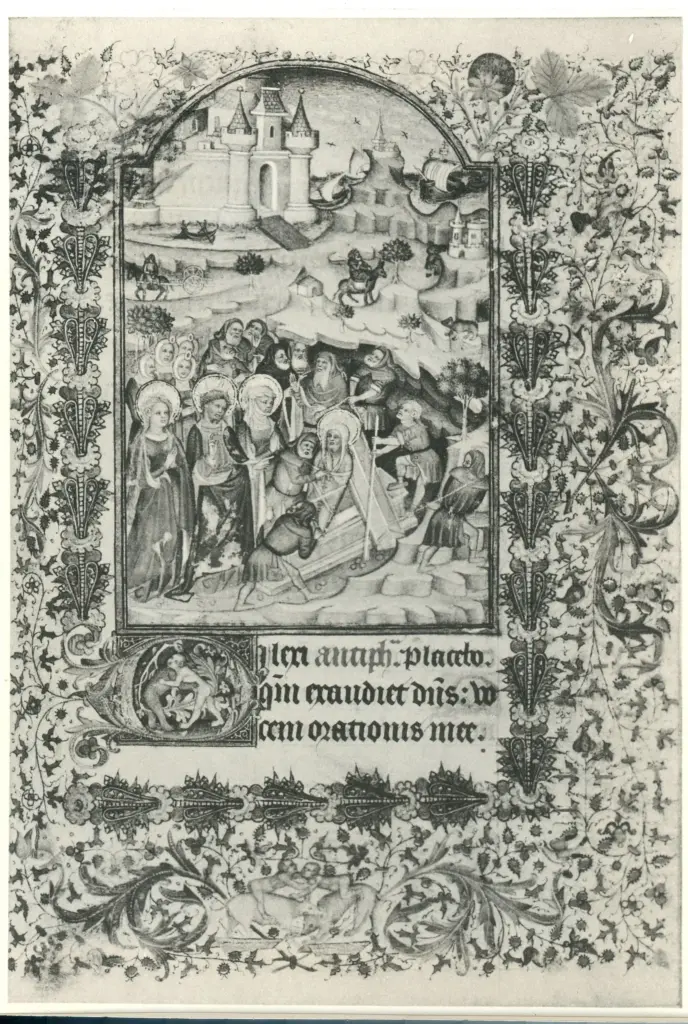 Dilexi antiph̄. placebo.
qm̄ exaudiet dn̄s: vo
cem orationis mee.